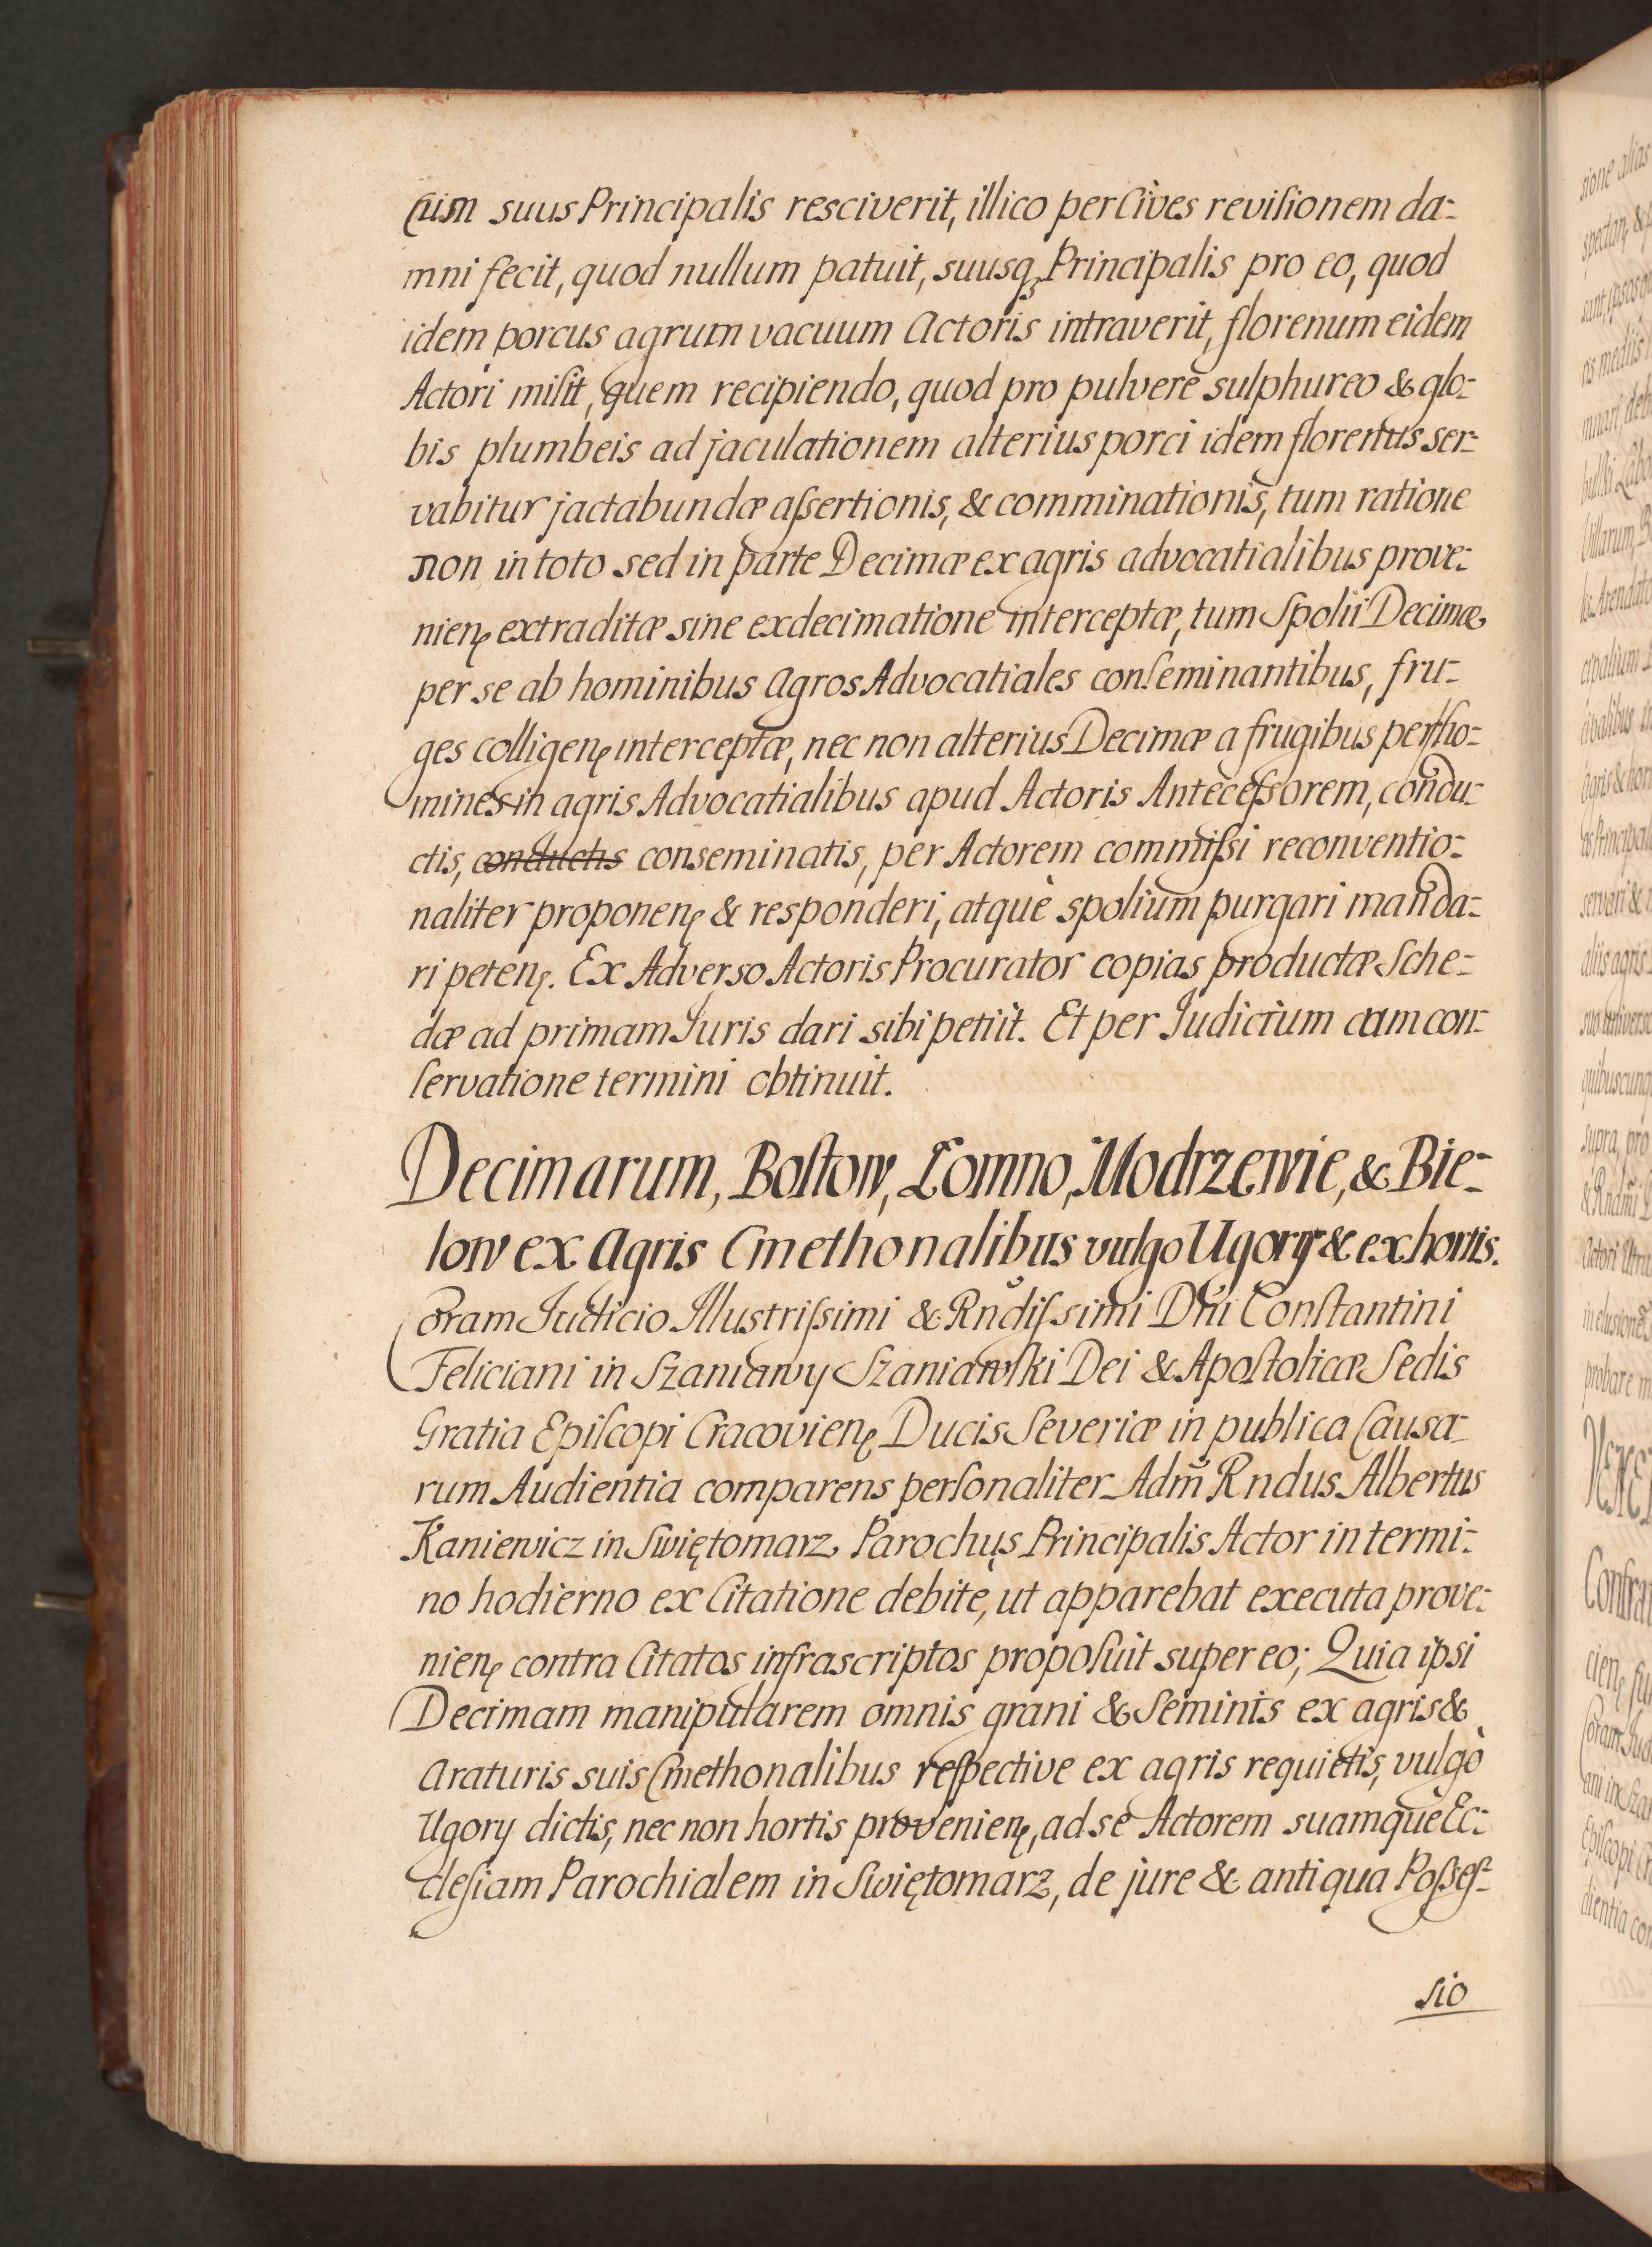 Cum suus Principalis resciverit, illico per Cives revisionem da-
mni fecit, quod nullum patuit, suusq3 Principalis pro eo, quod
idem porcus agrum vacuum Actoris intraverit, florenum eidem
Actori misit, quem recipiendo, quod pro pulvere sulphureo & glo-
bis plumbeis ad jaculationem alterius porci idem florenus ser-
vabitur jactabundæ assertionis, & comminationis, tum ratione
non in toto sed in parte Decimæ ex agris advocatialibus prove-
nienę extraditæ sine exdecimatione interceptæ, tum Spolii Decimæ
per se ab hominibus Agros Advocatiales conseminantibus, fru-
ges colligenę interceptæ, nec non alterius Decimæ a frugibus per ho-
mines in agris Advocatialibus apud Actoris Antecessorem, condu-
ctis, conductis conseminatis, per Actorem commissi reconventio-
naliter proponenę & responderi, atquè spolium purgari manda-
ri petenę. Ex Adverso Actoris Procurator copias productæ Sche-
dæ ad primam Juris dari sibi petiit. Et per Judicium cum con-
servatione termini obtinuit.
Decimarum, Bostow, Łomno, Modrzewie, & Bie-
low ex Agris Cmethonalibus vulgo Ugory & ex hortis.
Coram Judicio Illustrissimi & Rndissimi Dni Constantini
Feliciani in Szaniawy Szaniawski Dei & Apostolicæ Sedis
Gratia Episcopi Cracovienę Ducis Severiæ in publica Causa-
rum Audientia comparens personaliter Adm Rndus Albertus
Kaniewicz in Swiętomarz Parochus Principalis Actor in termi-
no hodierno ex Citatione debite, ut apparebat executa prove-
nienę contra Citatos infrascriptos proposuit super eo; Quia ipsi
Decimam manipularem omnis grani & Seminis ex agris &
Araturis suis Cmethonalibus respective ex agris requietis, vulgò
Ugory dictis, nec non hortis provenienę, ad se Actorem suamque Ec-
clesiam Parochialem in Swiętomarz, de jure & antiqua Posses-
sio